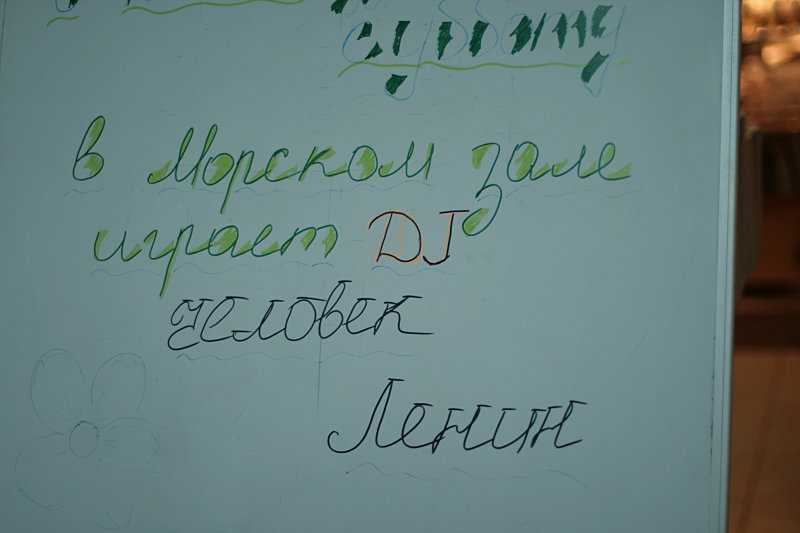 субботу
в Морском зале
играет DJ
Человек
Ленин